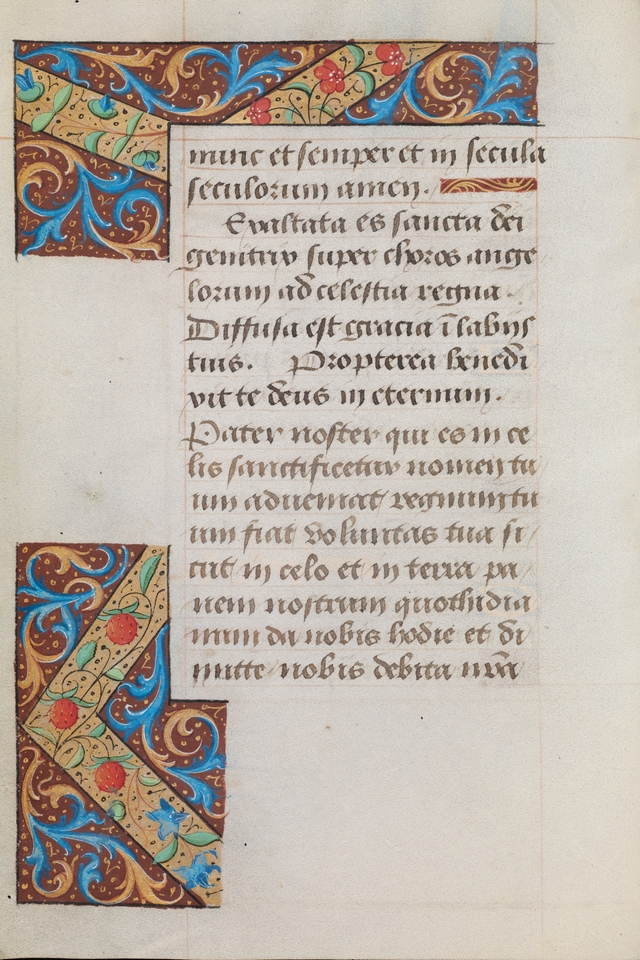 nunc et semper et in secula
seculorum amen.
Exaltata es sancta dei
genitrix super choros ange
lorum ad celestia regna.
Diffusa est gracia ī labijs
tuis. Propterea benedi
xit te deus in eternum.
Pater noster qui es in ce
lis sanctificetur nomen tu
um adueniat regnum tu
um fiat voluntas tua si
cut in celo et in terra pa
nem nostrum quothidia
num da nobis hodie et di
mitte nobis debita nr̄a